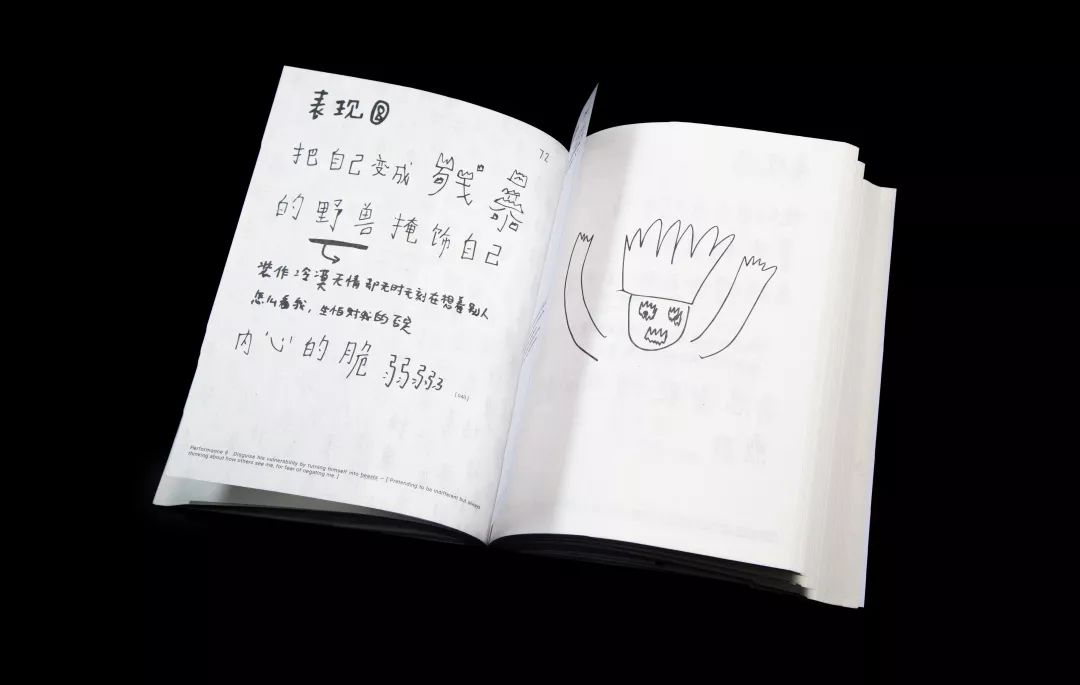 表现⑧
72
把自己变成
的野兽掩饰自己
装作冷漠无情却无时无刻在想着别人
怎么看我，生怕对我的否定
内心的脆弱
[040]
Performance 8 Disguise his vulnerability by turning himself into beasts — [ Pretending to be indifferent but always
thinking about how others see me, for fear of negating me ]